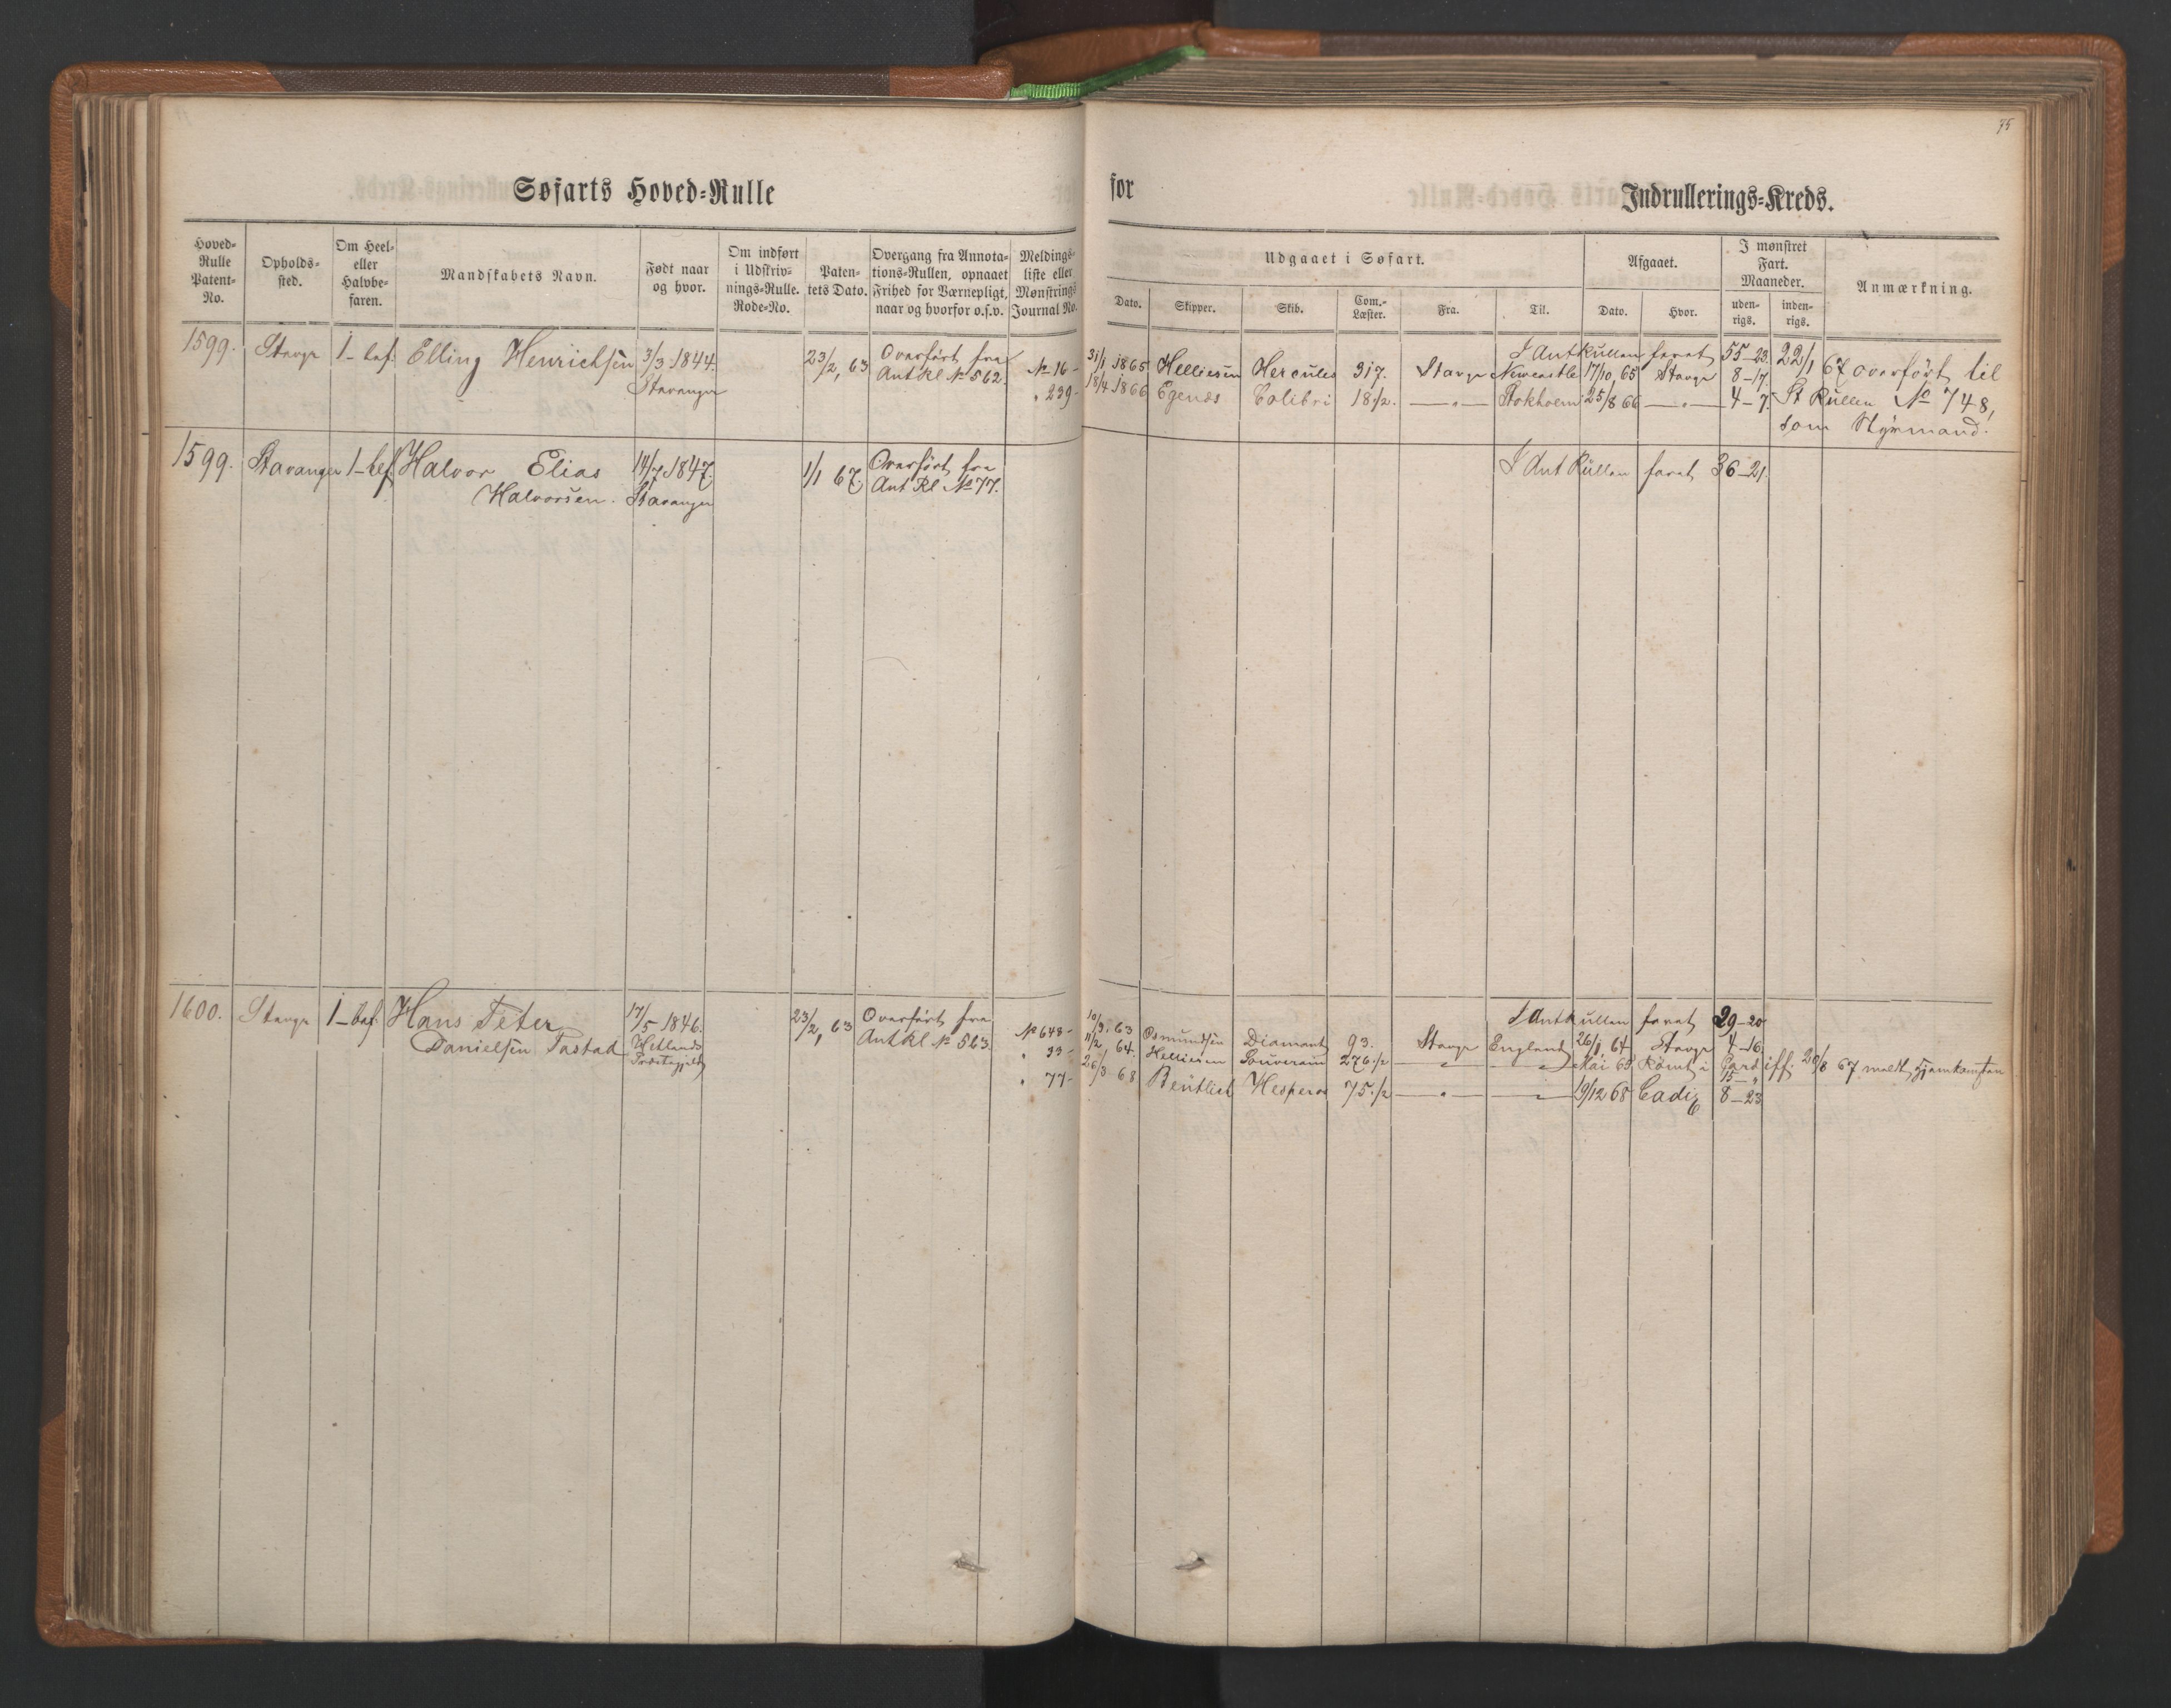 75
Søfarts Hoved=Rulle for Indrullerings=Kreds.
Hoved=Rulle Patent=No.
Opholds=sted.
Om Heel= eller Halvbe=faren.
Mandskabets Navn.
Født naar og hvor.
Om indført i Udskriv=nings=Rulle. Rode=No.
Paten=tets Dato.
Overgang fra Annota=tions=Rullen, opnaaet Frihed for Værnepligt, naar og hvorfor o.s.v.
Meldings=liste eller Mønstrings Journal No.
Udgaaet i Søfart.
Dato. Skipper. Skib. Com.=Læster. Fra. Til.
Afgaaet.
Dato. Hvor.
I mønstret Fart. Maaneder.
uden=rigs. inden=rigs.
Anmærkning.
1599. Stavgr 1-bef. Elling Henrichsen 3/3 1844. 23/2, 63 Overført fra I Antrullen faret 55-23. 22/1 67 overført til
Stavanger Ant Rl No 562. No 16- 31/1 1865 Helliesen Hercules 317. Stavgr Newcastle 17/10, 65 Stavgr 8-17. St Rullen No 748,
" 239- 18/4 1866 Egenæs Colibri 18 1/2. —"— Stokholm 25/8 66 —"— 4-7. som Styrmand.
1599. Stavanger 1-bef. Halvor Elias 14/7 1847. 1/1 67. Overført fra I Ant Rullen faret 36-21.
Halvorsen. Stavanger Ant Rl No 77.
1600. Stavgr 1-bef. Hans Peter 17/5 1846. 23/2, 63 Overført fra I Antrullen faret 29-20
Danielsen Tastad Hetlands Præstegjeld Ant Rl No 563. No 648- 10/9. 63 Osmundsen Diamant 93. Stavgr England 26/1 64 Stavgr 4-16.
" 33- 11/2 64. Helliesen Souverain 276 1/2 —"— —"— Mai 65 Rømt i Cardiff. 15-" 20/8 67 meldt hjemkomsten
" 77- 26/3 68 Bentlich Hesperos 75 1/2 —"— —"— 19/12 68 Cadiz 8-23